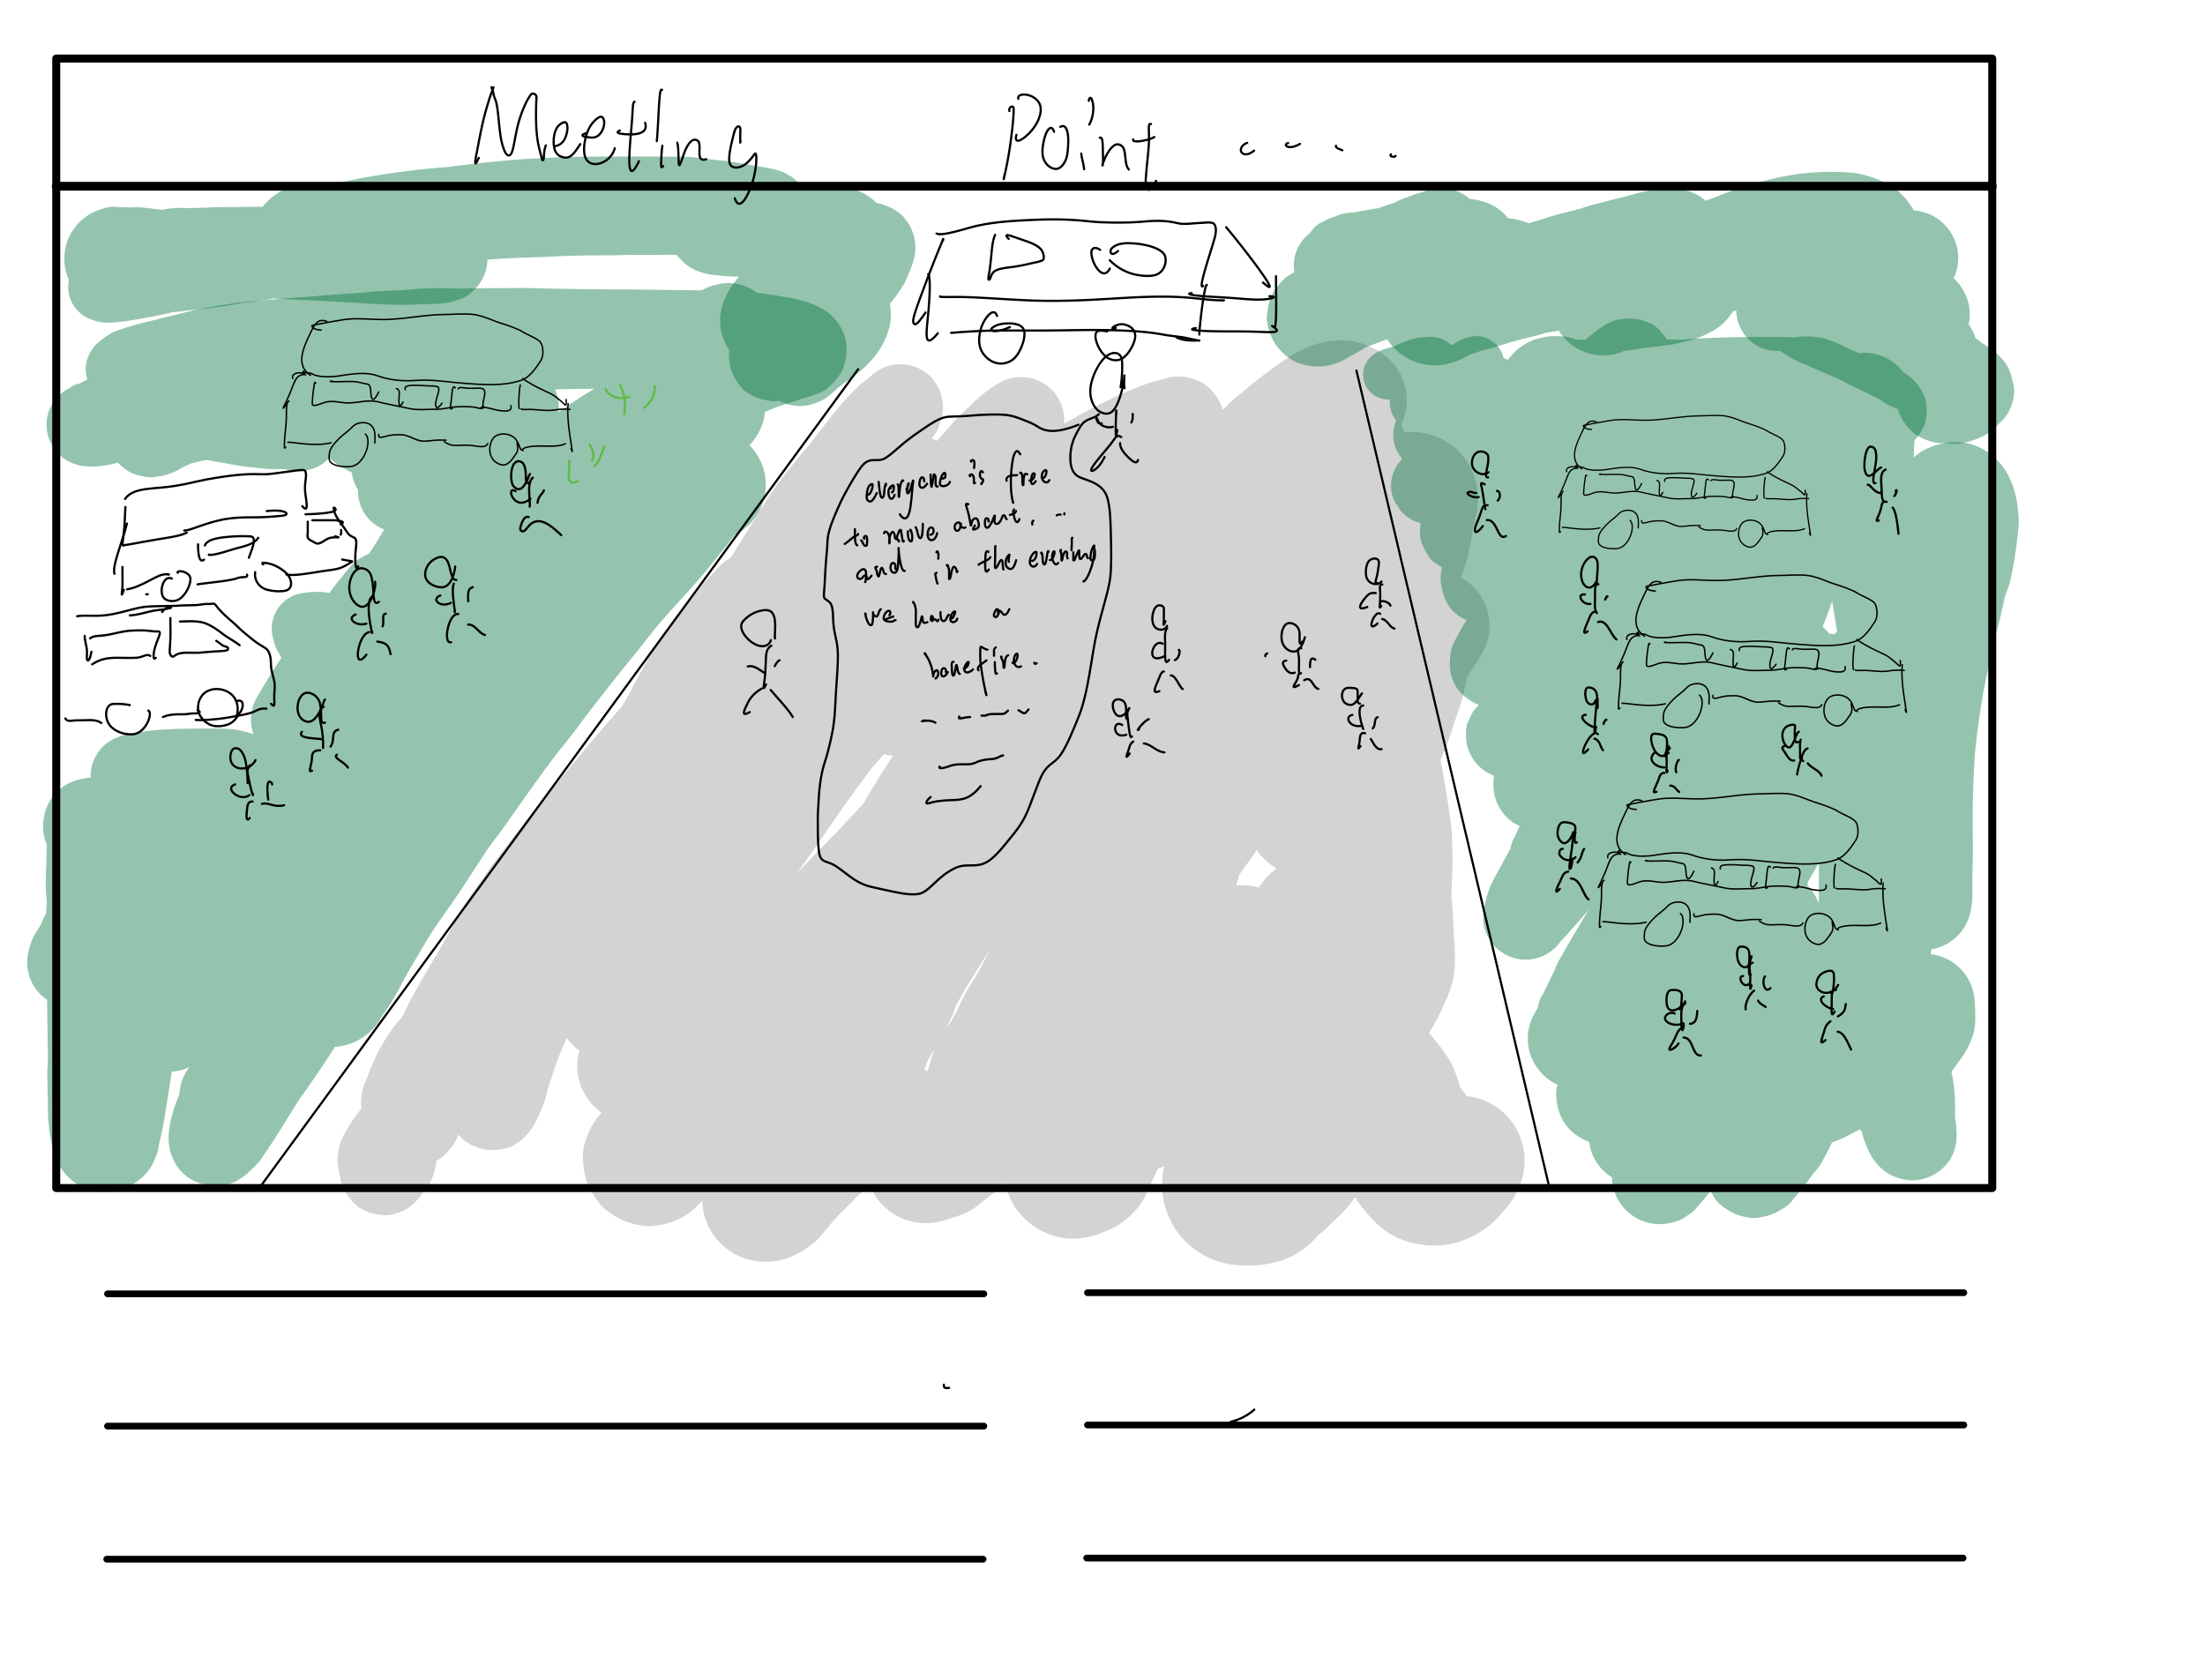 Meeting Point .....
DO
everyone is free
to move about ..
and in the evening
we have a
bonefire.